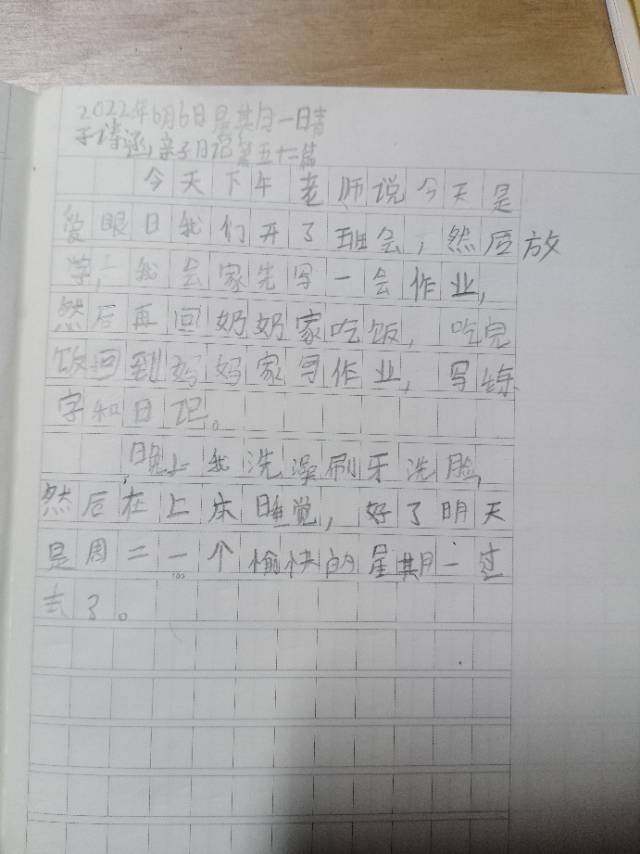 2022年6月6日星期一日青
诗涵,亲子日记第五十二篇
今天下午老师说今天是
爱眼日我们开了班会,然后放
学,我会家先写一会作业,
然后再回奶奶家吃饭,吃完
饭回到妈妈家写作业,写练
字和日记。
晚上我洗澡刷牙洗脸,
然后在上床睡觉,好了明天
是周二一个愉快的星期一过
去了。